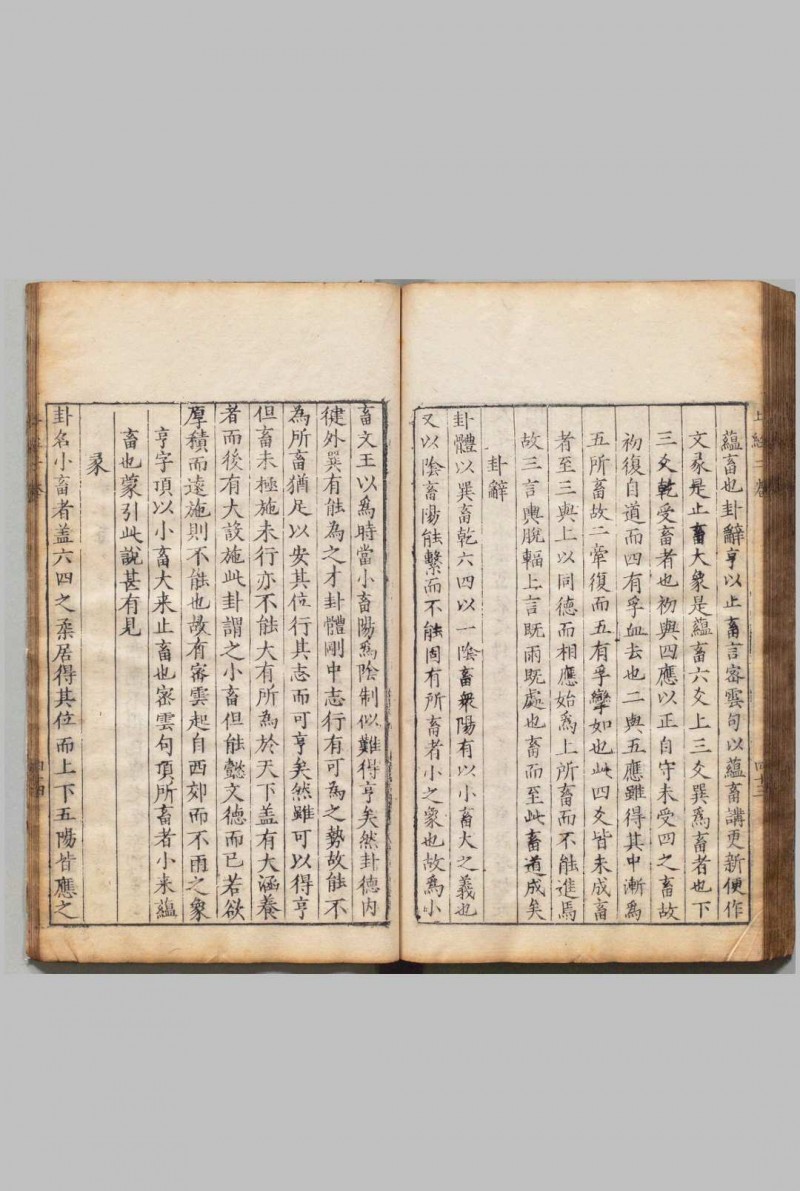 蘊畜也卦辭亨以止畜言密雲句以蘊畜講更新便作
文彖是止畜大象是蘊畜六爻上三爻巽為畜者也下
三爻乾受畜者也初與四應以正自守未受四之畜故
初復自道而四有孚血去也二與五應雖得其中漸為
五所畜故二牽復而五有孚攣如也此四爻皆未成畜
者至三與上以同德而相應始為上所畜而不能進焉
故三言輿脫輻上言旣雨旣處也畜而至此畜道成矣
卦辭
卦體以巽畜乾六四以一陰畜衆陽有以小畜大之義也
又以陰畜陽能繫而不能固有所畜者小之象也故為小
畜文王以為時當小畜陽為陰制似難得亨矣然卦德内
健外巽有能為之才卦體剛中志行有可為之勢故能不
為所畜猶足以安其位行其志而可亨矣然雖可以得亨
但畜未極施未行亦不能大有所為於天下盖有大涵養
者而後有大設施此卦謂之小畜但能懿文德而已若欲
厚積而遠施則不能也故有密雲起自西郊而不雨之象
亨字頂以小畜大来止畜也密雲句頂所畜者小来蘊
畜也蒙引此說甚有見
彖
卦名小畜者盖六四之柔居得其位而上下五陽皆應之
上經二卷
四十三